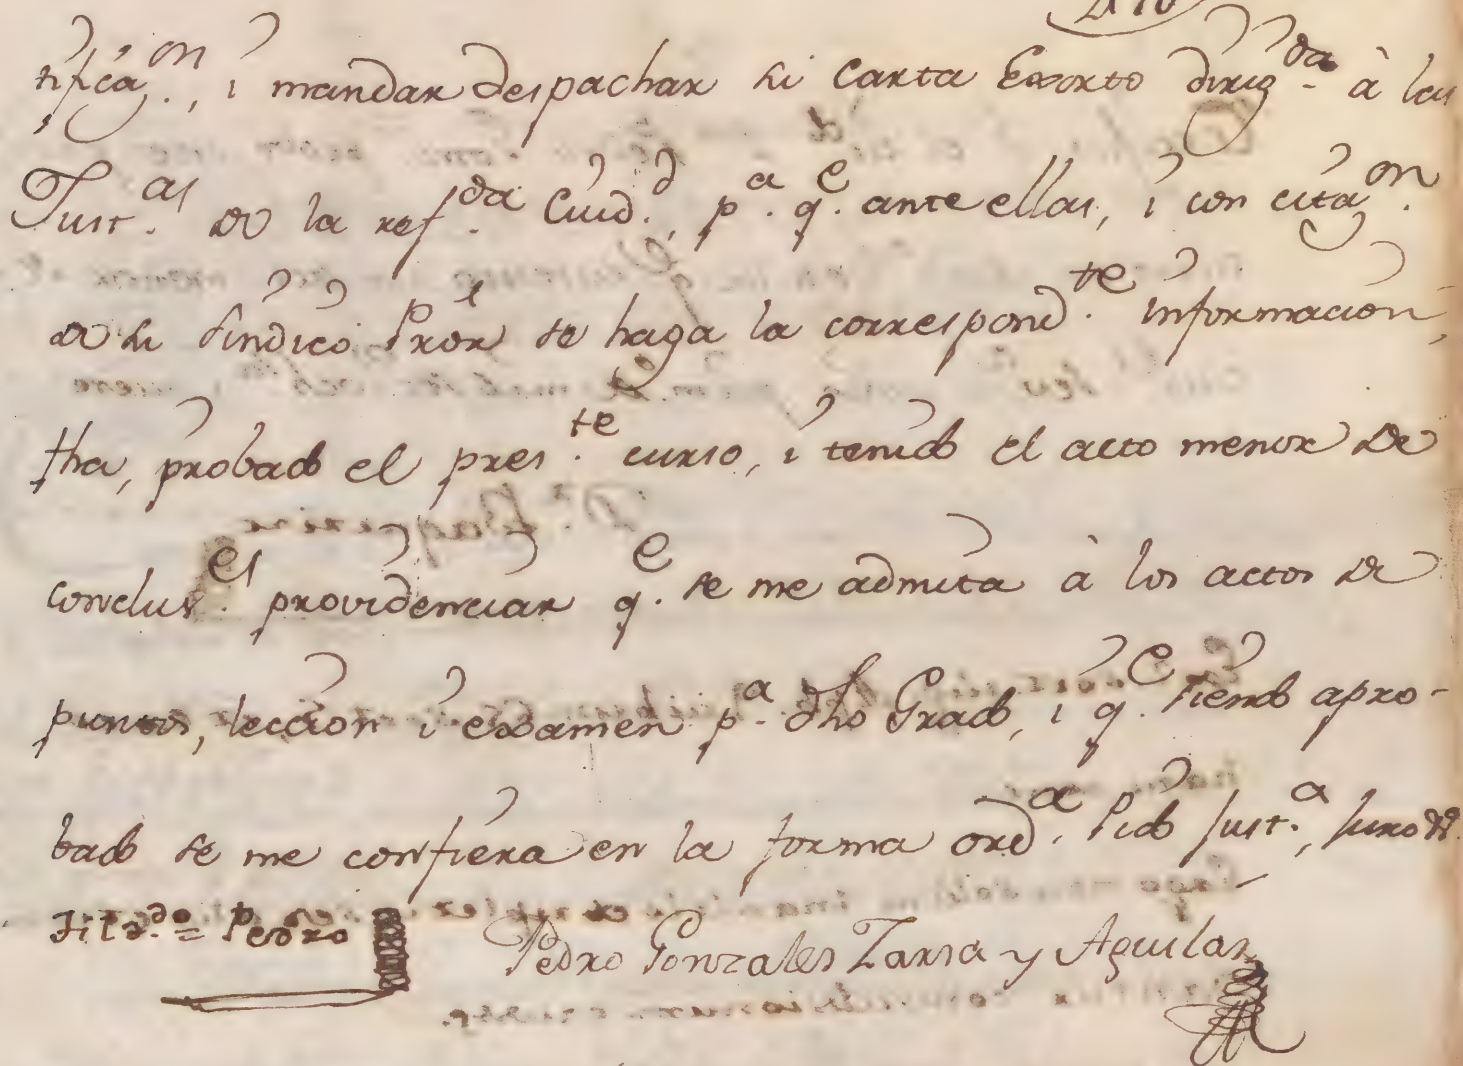 tificaon., i mandar despachar su carta Exorto dirigda. à las
Justas. de la refda. Ciudd., pa. qe. ante ellas, i con citaon.
de su Sindico Pror se haga la correspondte. informacion,
fha, probado el preste. curso, i tenido el acto menor de
concluses. providenciar qe. se me admita à los actos de
puntos, leccion i examen pa. dho Grado, i qe. siendo apro-
bado se me confiera en la forma orda. Pido Justa., Juro &a.
Pedro
Pedro Gonzales Zarsa y Aguilar